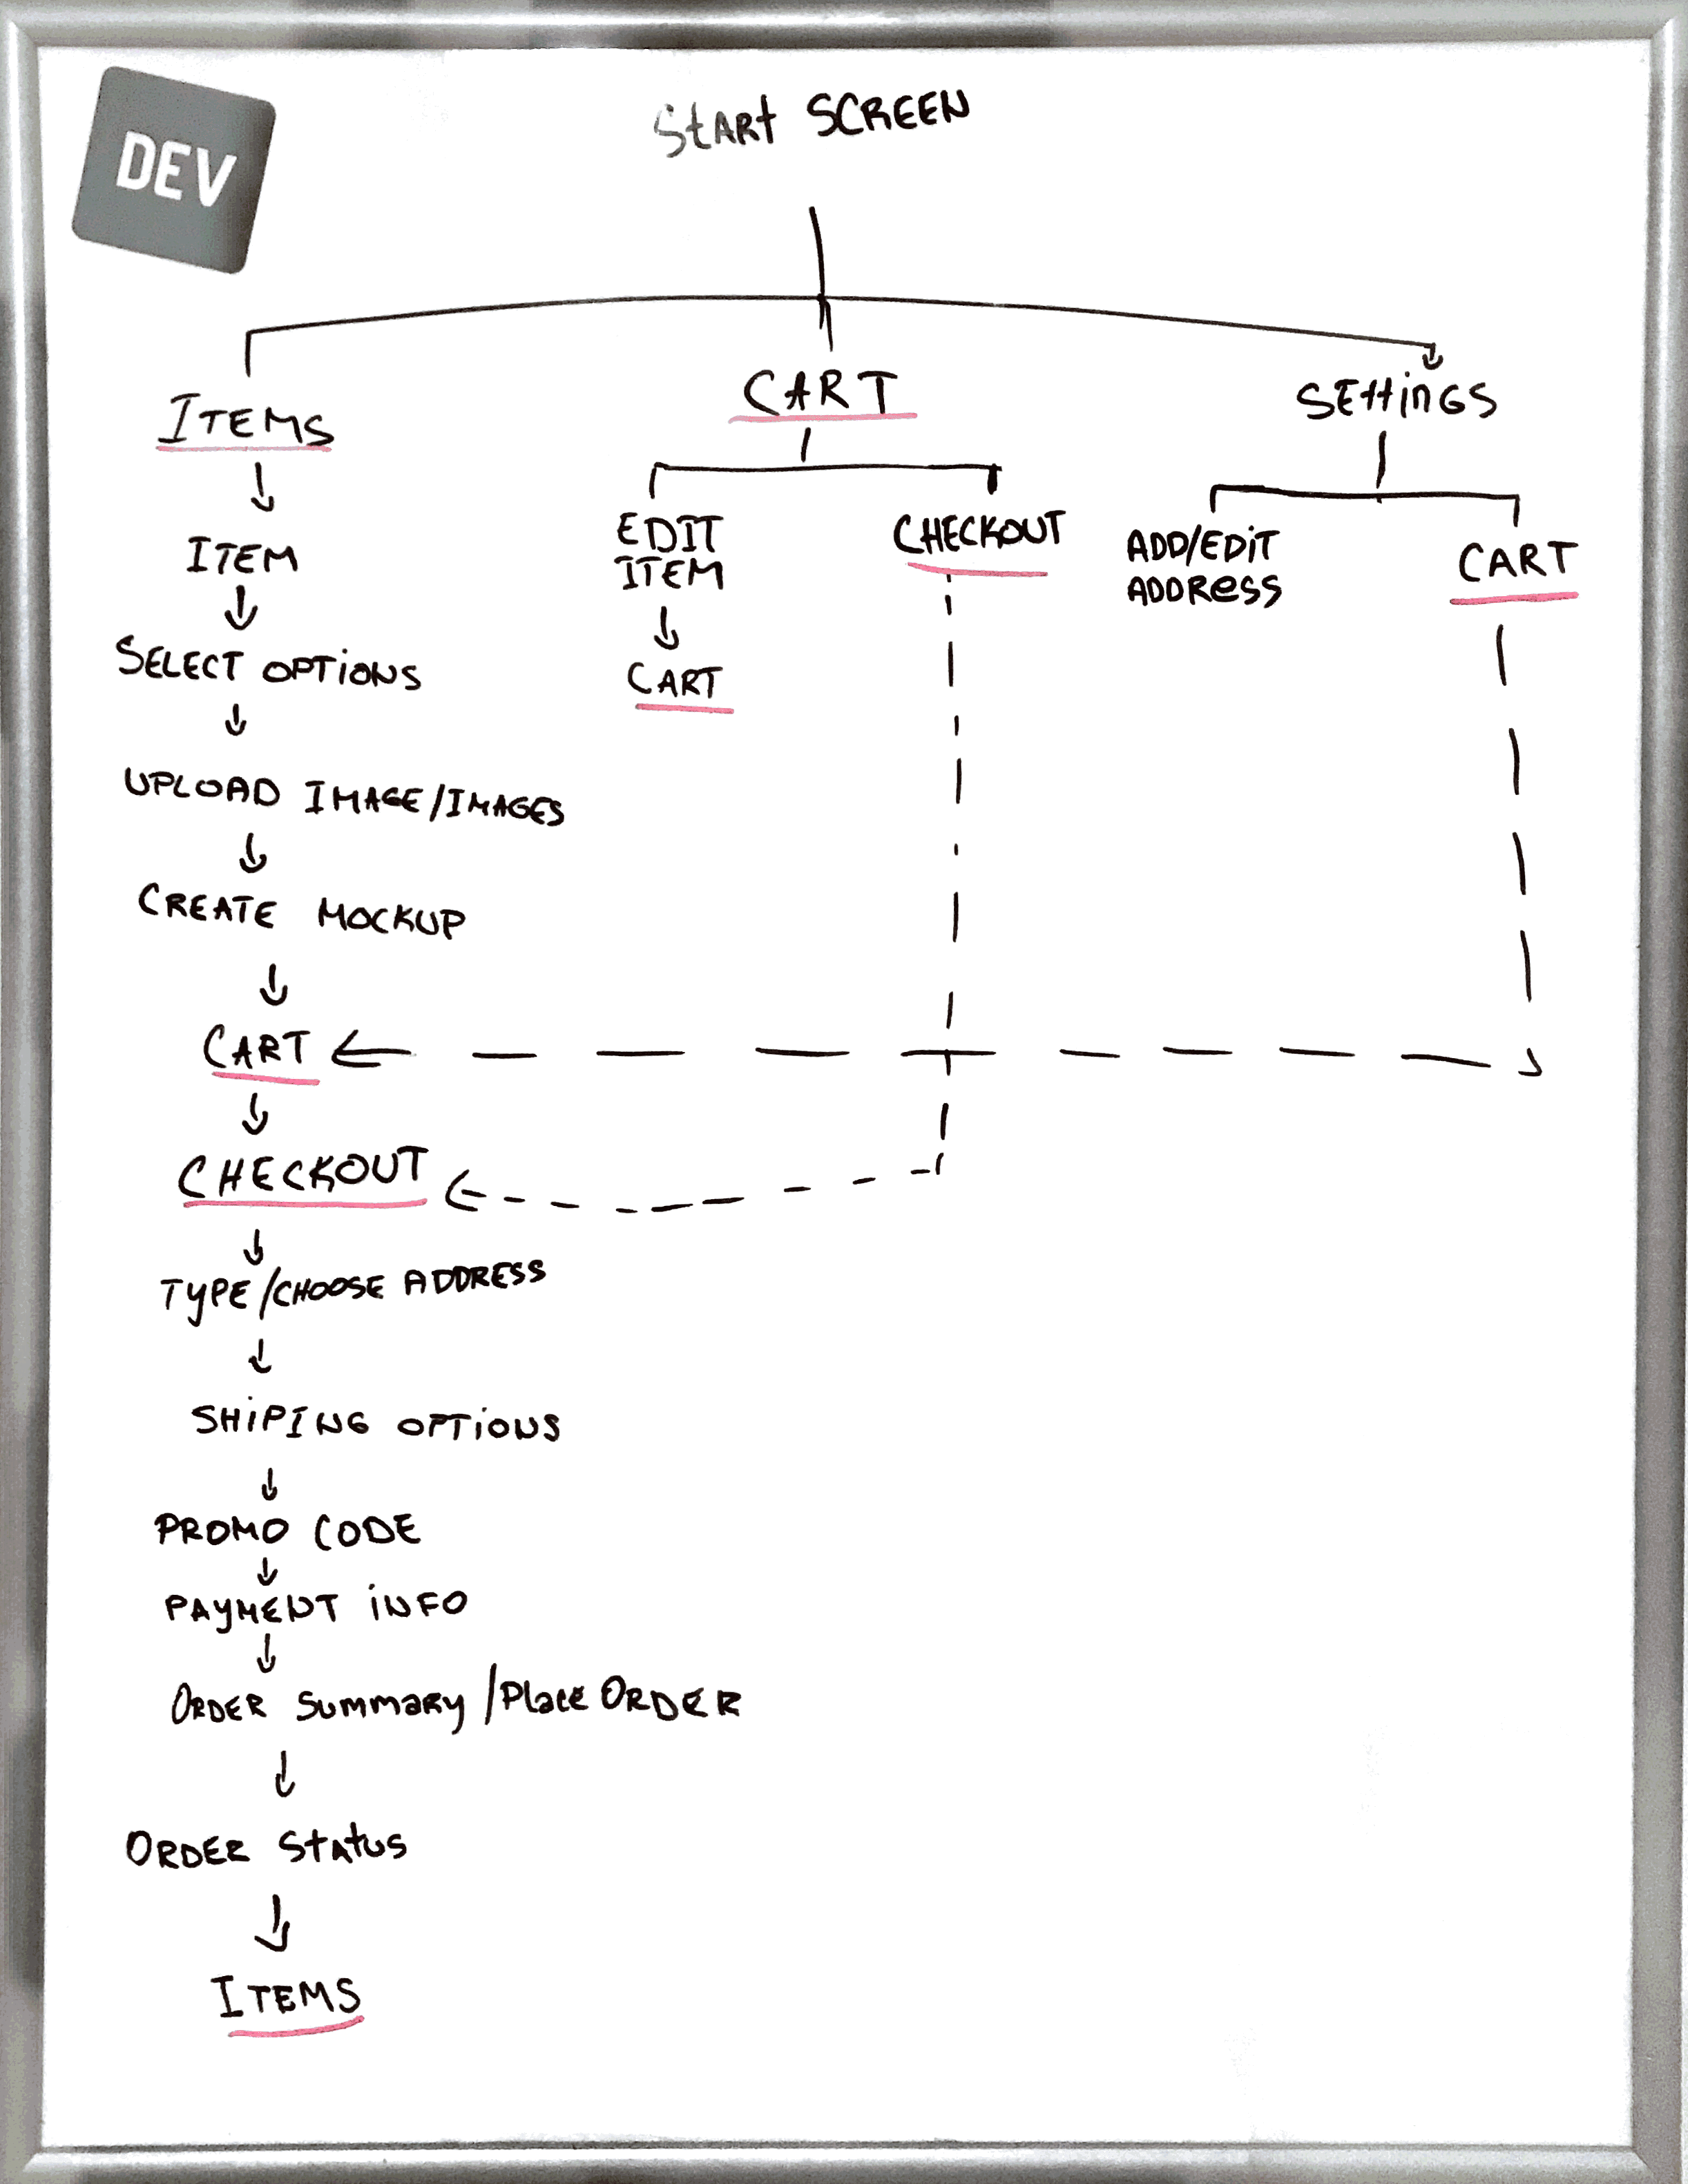 DEV
START SCREEN
ITEMS
CART
SETTINGS
ITEM
EDIT
ITEM
CHECKOUT
ADD/EDIT
ADDRESS
CART
SELECT OPTIONS
CART
UPLOAD IMAGE/IMAGES
CREATE MOCKUP
CART
CHECKOUT
TYPE/CHOOSE ADDRESS
SHIPING OPTIONS
PROMO CODE
PAYMENT INFO
ORDER SUMMARY/PLACE ORDER
ORDER STATUS
ITEMS